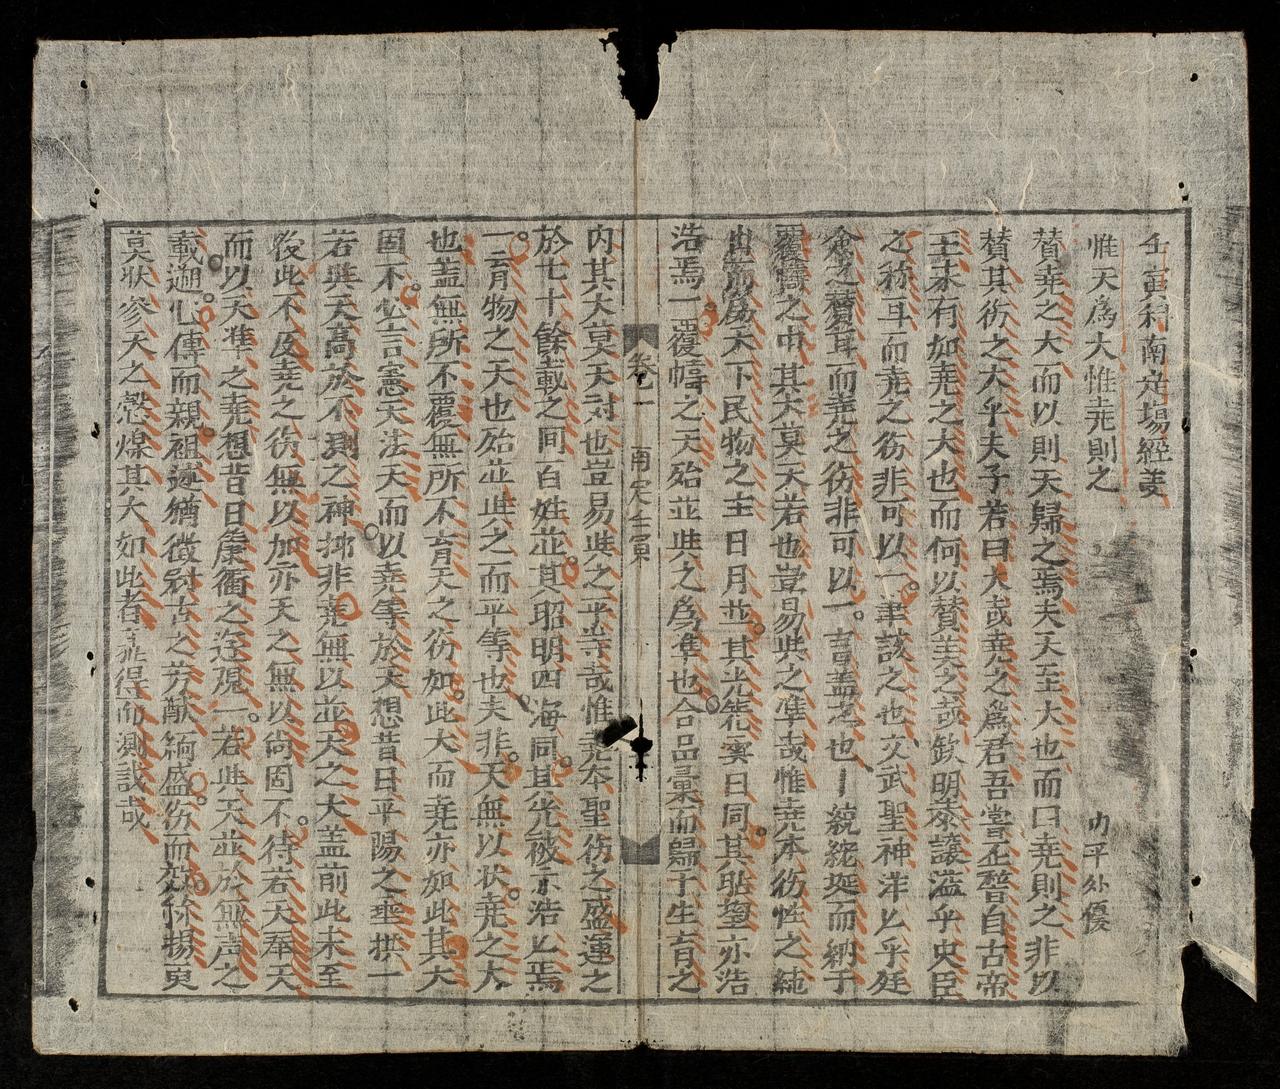 壬寅科南定塲經義
惟天爲大惟堯則之 内平外優
賛堯之大而以則天歸之焉夫天至大也而曰堯則之非以
賛其彷之大乎夫子若曰大哉堯之爲君吾嘗歷暬自古帝
王未有加堯之大也而何以賛美之哉欽明恭讓溢乎史臣
之称耳而堯之彷非可以一筆該之也文武聖神洋以乎廷
僉之賛耳而堯之彷非可以一言盖之也一統綻埏而納于
覆幬之中其大莫天若也豈易與之準哉惟堯本彷性之純
出而爲天下民物之主日月並其光 寞日同其 亦浩
浩焉一覆幬之天殆並與之爲準也合品彙而歸于生育之
卷一 南定壬寅
内其大莫天对也豈易與之平等哉惟堯本聖彷之盛運之
於七十餘載之间百姓並其昭明四海同其光被亦浩以焉
一亭物之天也殆並與之而平等也夫非天無以状堯之大
也盖無所不覆無所不育天之彷如此大而堯亦如此其大
固不必言憲天法天而以堯等於天想昔日平陽之垂拱一
若與天高於不測之神抑非堯無以並天之大盖前此未至
後此不及堯之彷無以加亦天之無以尚固不待若天奉天
而以天準之堯想昔日康衢之逹覌一若與天並於無声之
載 心傳而親祖述猶徴对古之芳猷緬盛彷而 揚 
莫状參天之 煤其大如此者 得而測哉